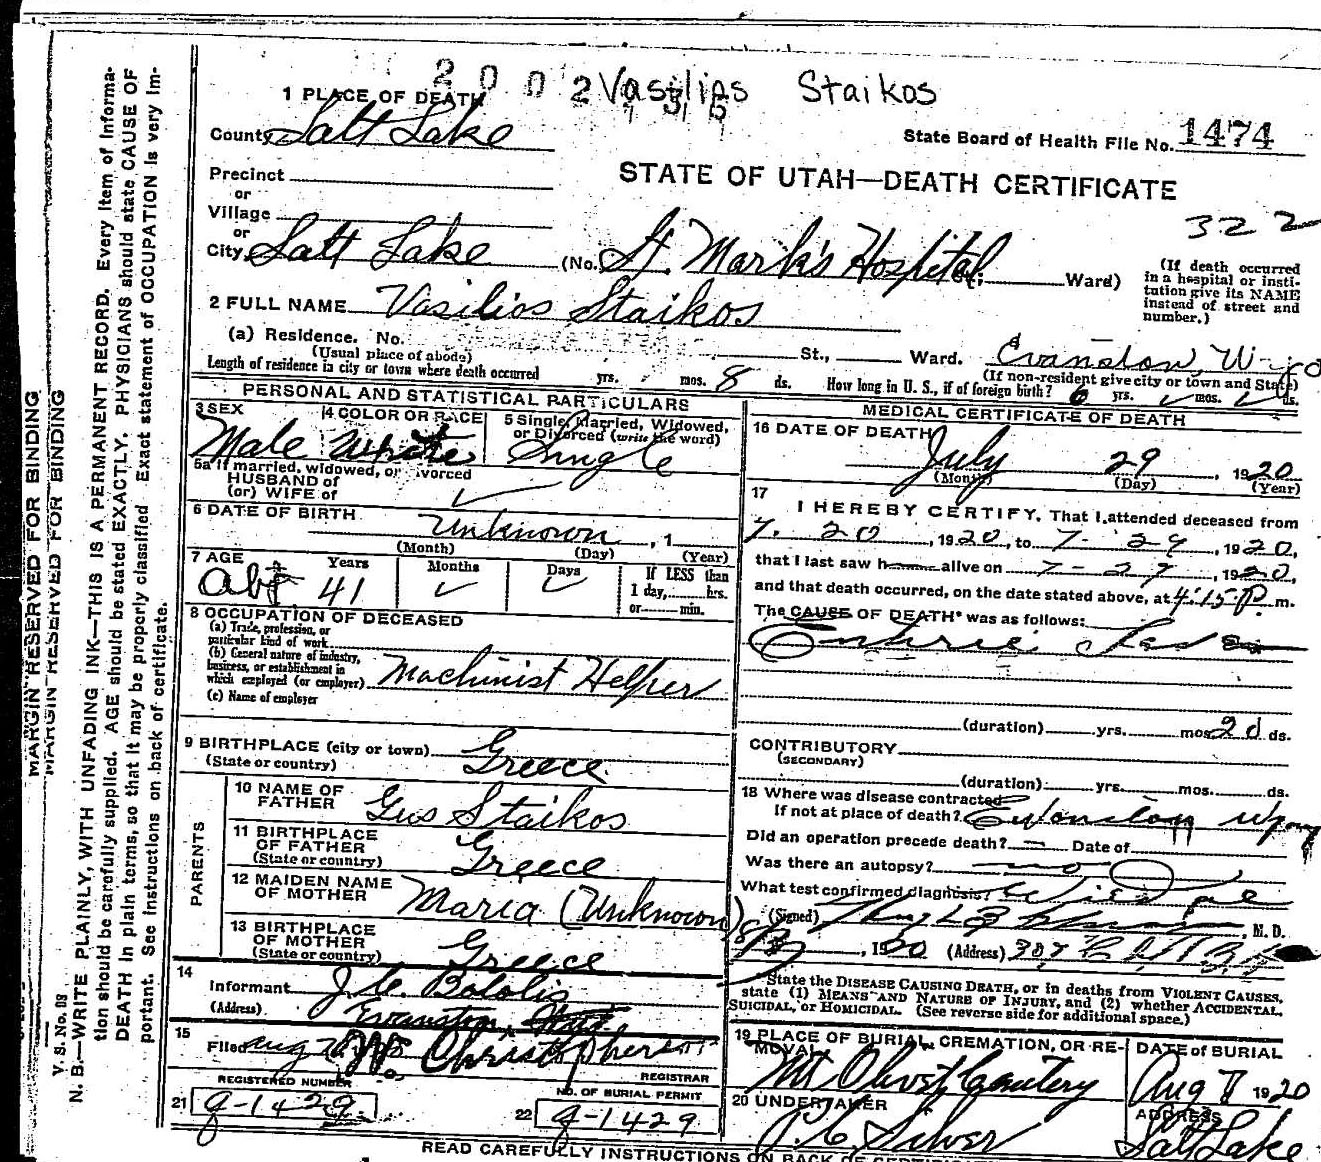 2002 Vasilios Staikos
1 PLACE OF DEATH
County Salt Lake
State Board of Health File No. 1474
Precinct
or
Village
or
STATE OF UTAH—DEATH CERTIFICATE
322
City Salt Lake (No. St. Mark's Hospital; Ward)
(If death occurred
in a hospital or insti-
tution give its NAME
instead of street and
number.)
2 FULL NAME Vasilios Staikos
(a) Residence. No. St., Ward. Evanston, Wyo
(Usual place of abode) (If non-resident give city or town and State)
Length of residence in city or town where death occurred yrs. mos. 8 ds. How long in U. S., if of foreign birth? 6 yrs. mos. ds.
PERSONAL AND STATISTICAL PARTICULARS
3 SEX 4 COLOR OR RACE 5 Single, Married, Widowed,
or Divorced (write the word)
Male White Single
5a If married, widowed, or divorced
HUSBAND of
(or) WIFE of
6 DATE OF BIRTH Unknown, 1
(Month) (Day) (Year)
7 AGE Years Months Days If LESS than
1 day, hrs.
or min.
Abt 41
8 OCCUPATION OF DECEASED
(a) Trade, profession, or
particular kind of work
(b) General nature of industry,
business, or establishment in
which employed (or employer) Machinist Helper
(c) Name of employer
9 BIRTHPLACE (city or town)
(State or country) Greece
PARENTS
10 NAME OF
FATHER Gus Staikos
11 BIRTHPLACE
OF FATHER
(State or country) Greece
12 MAIDEN NAME
OF MOTHER Maria (Unknown)
13 BIRTHPLACE
OF MOTHER
(State or country) Greece
14
Informant J. C. Bololis
(Address) Evanston,
15
Filed Aug
REGISTRAR
REGISTERED NUMBER
21 g-1429
NO. OF BURIAL PERMIT
22 g-1429
MEDICAL CERTIFICATE OF DEATH
16 DATE OF DEATH
July 29, 1920
(Month) (Day) (Year)
17
I HEREBY CERTIFY, That I attended deceased from
7. 20, 1920, to 7-29, 1920,
that I last saw h alive on 7-29, 1920,
and that death occurred, on the date stated above, at 4:15 P. m.
The CAUSE OF DEATH* was as follows:
(duration) yrs. mos 20 ds.
CONTRIBUTORY
(SECONDARY)
(duration) yrs. mos. ds.
18 Where was disease contracted
If not at place of death? Evanston Wyo
Did an operation precede death? — Date of
Was there an autopsy? no
What test confirmed diagnosis? Widal
(Signed) , M. D.
, 1920 (Address)
State the DISEASE CAUSING DEATH, or in deaths from VIOLENT CAUSES,
state (1) MEANS AND NATURE OF INJURY, and (2) whether ACCIDENTAL,
SUICIDAL, or HOMICIDAL. (See reverse side for additional space.)
19 PLACE OF BURIAL, CREMATION, OR RE-
MOVAL
Mt Olivet Cemetery
DATE of BURIAL
Aug 1 1920
20 UNDERTAKER
Silver
ADDRESS
Salt Lake
READ CAREFULLY INSTRUCTIONS ON BACK OF
MARGIN RESERVED FOR BINDING
MARGIN RESERVED FOR BINDING
V. S. No.
N. B.—WRITE PLAINLY, WITH UNFADING INK—THIS IS A PERMANENT RECORD. Every item of informa-
tion should be carefully supplied. AGE should be stated EXACTLY. PHYSICIANS should state CAUSE OF
DEATH in plain terms, so that it may be properly classified. Exact statement of OCCUPATION is very im-
portant. See instructions on back of certificate.